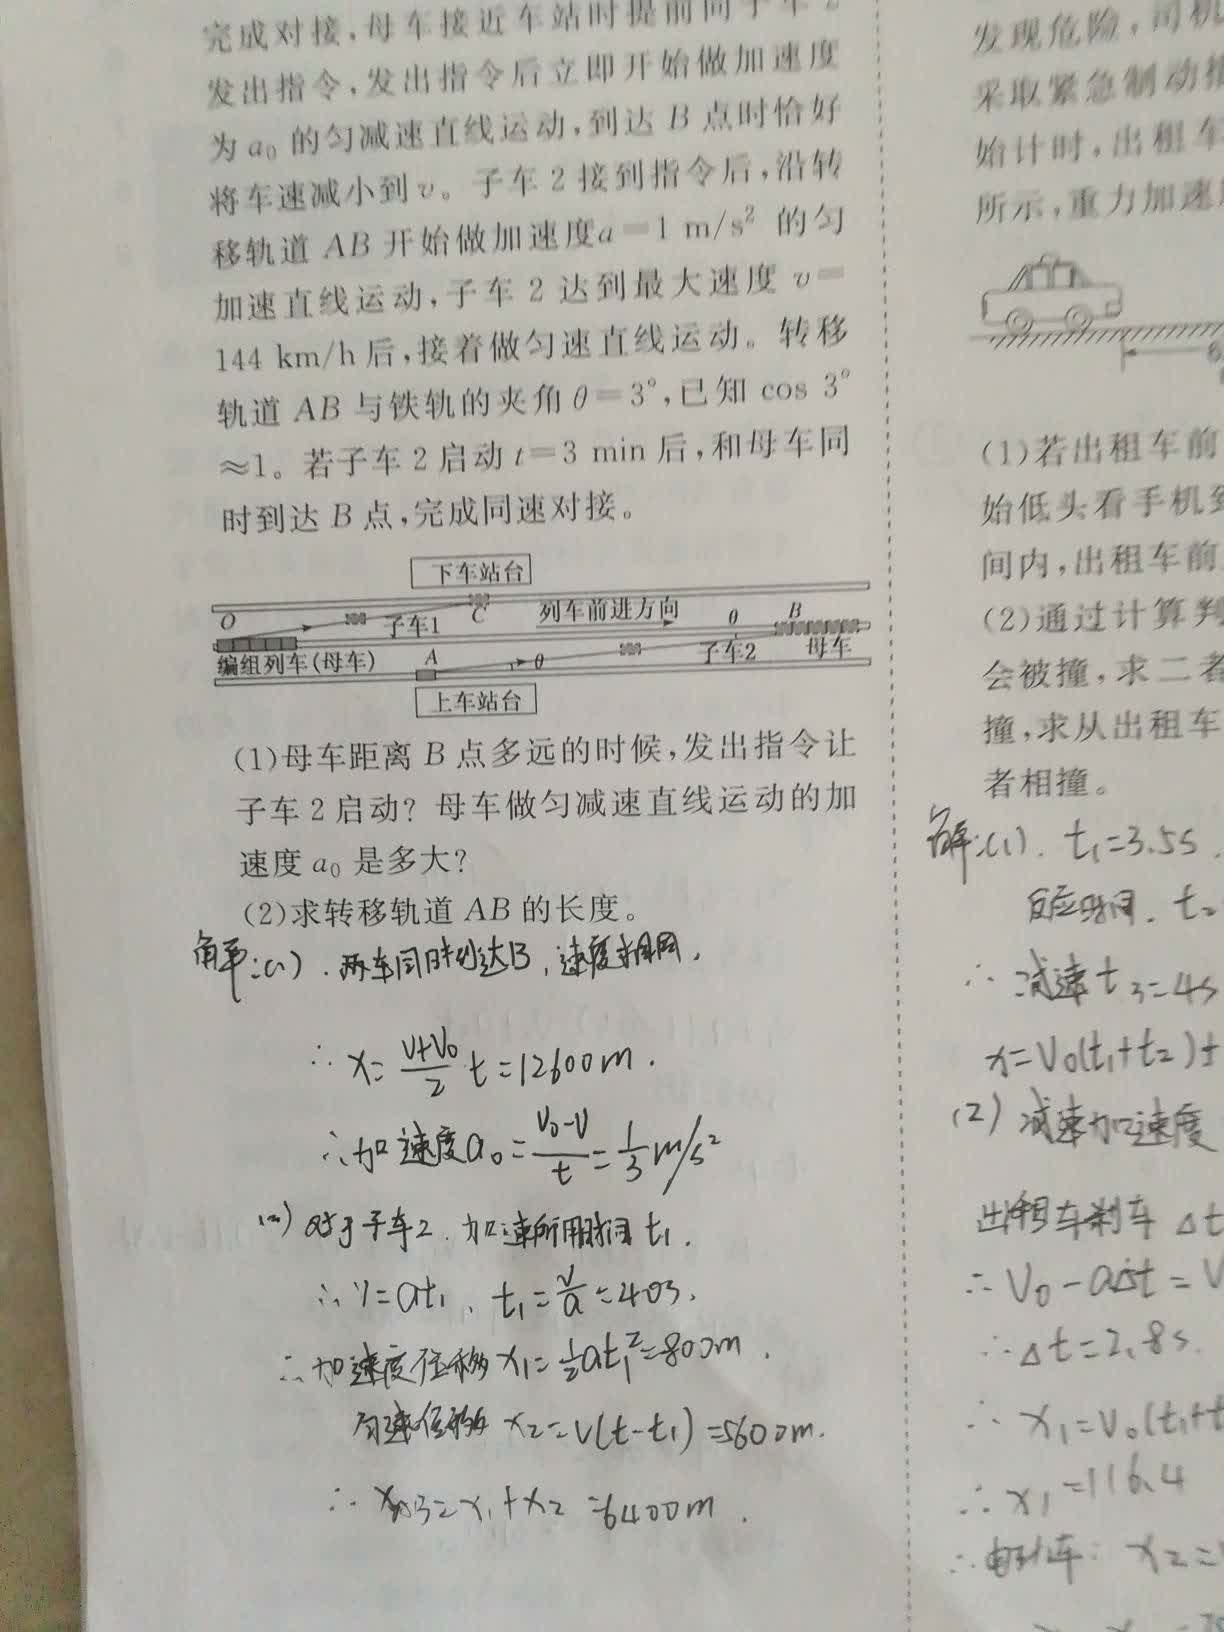 完成对接,母车接近车站时提前向子车2
发出指令,发出指令后立即开始做加速度
为a₀的匀减速直线运动,到达B点时恰好
将车速减小到v。子车2接到指令后,沿转
移轨道AB开始做加速度a=1 m/s²的匀
加速直线运动,子车2达到最大速度v=
144 km/h后,接着做匀速直线运动。转移
轨道AB与铁轨的夹角θ=3°,已知cos 3°
≈1。若子车2启动t=3 min后,和母车同
时到达B点,完成同速对接。
下车站台
O 子车1 C 列车前进方向 θ B
编组列车(母车) A θ 子车2 母车
上车站台
(1)母车距离B点多远的时候,发出指令让
子车2启动?母车做匀减速直线运动的加
速度a₀是多大?
(2)求转移轨道AB的长度。
解:(1).两车同时到达B,速度相同,
∴x=(v+v₀)/2 t=12600m.
∴加速度a₀=(v₀-v)/t=1/3 m/s²
(2)对于子车2.加速所用时间t₁.
∴v=at₁,t₁=v/a=40s.
∴加速度位移x₁=½at₁²=800m.
匀速位移x₂=v(t-t₁)=5600m.
∴x_AB=x₁+x₂=6400m.
发现危险,司机
采取紧急制动措
始计时,出租车
所示,重力加速
(1)若出租车前
始低头看手机到
间内,出租车前
(2)通过计算判
会被撞,求二者
撞,求从出租车
者相撞。
解:(1).t₁=3.5s.
反应时间.t₂
∴减速t₃=4s
x=v₀(t₁+t₂)+
(2)减速加速度
出租车刹车Δt
∴v₀-aΔt=v
∴Δt=2.8s.
∴x₁=v₀(t₁+t
∴x₁=116.4
x₂=